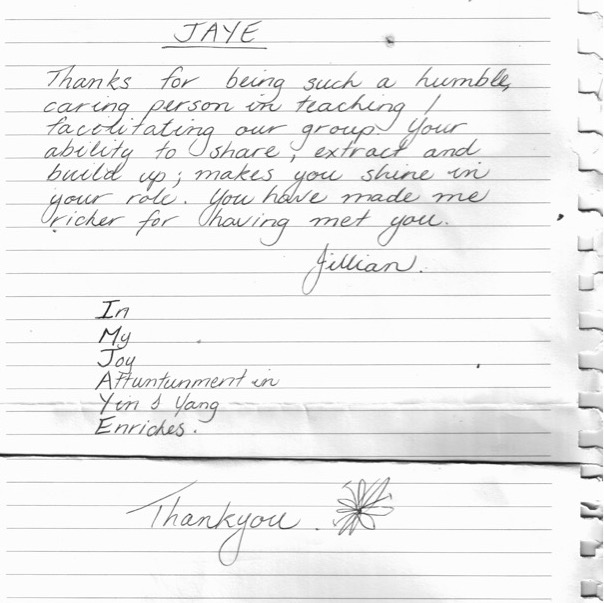 JAYE
Thanks for being such a humble,
caring person in teaching /
facilitating our group. Your
ability to share, extract and
build up; makes you shine in
your role. You have made me
richer for having met you.
Jillian.
In
My
Joy
Attuntunment in
Yin & Yang
Enriches.
Thankyou.